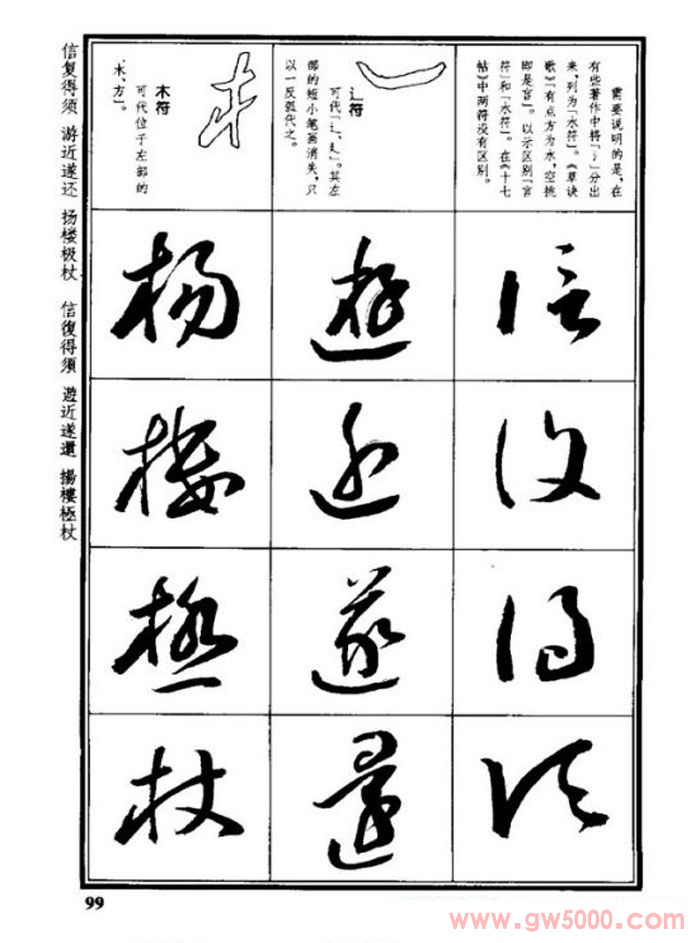 需要说明的是,在
有些著作中将「讠」分出
来,列为「水符」。《草诀
歌》「有点方为水,空挑
即是言」。以示区别「言
符」和「水符」。在《十七
帖》中两符没有区别。
辶符
可代「辶、廴」。其左
部的短小笔画消失,只
以一反弧代之。
木符
可代位于左部的
「木、方」。
信 復 得 須
遊 近 遂 還
楊 樓 極 杖
信复得须 游近遂还 扬楼极杖 信復得須 遊近遂還 揚樓極杖
99
www.gw5000.com